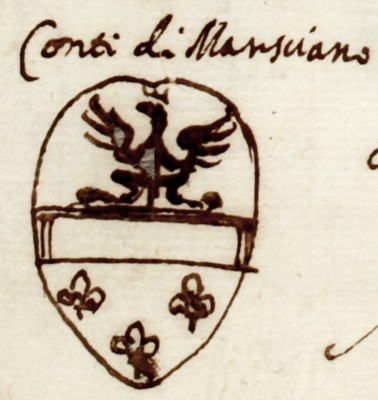 Conti di Marsciano